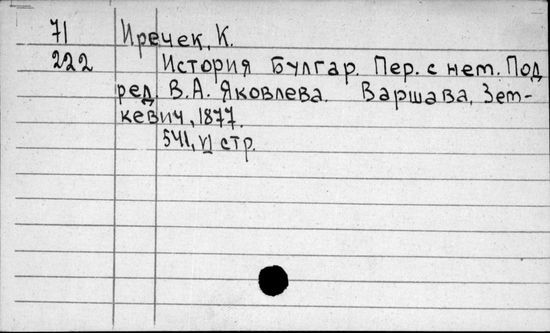 71 Иречек, К.
222 История Булгар. Пер. с нем. Под
ред. В.А. Яковлева. Варшава, Зем-
кевич, 1877.
541, VI стр.